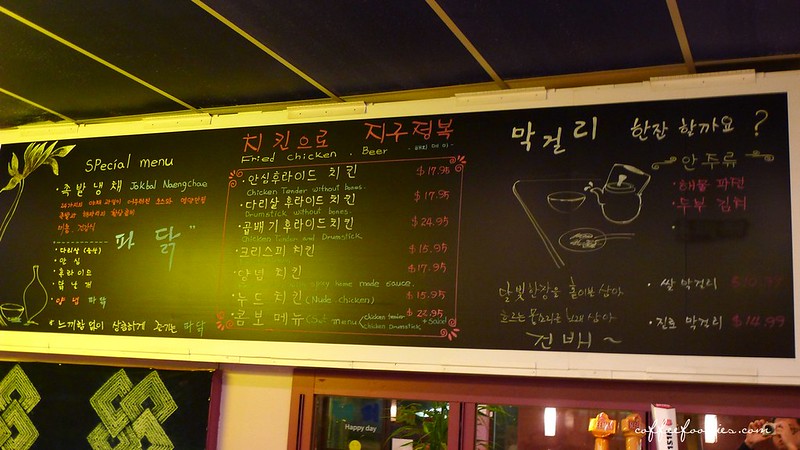 SPecial menu
· 족발 냉채 Jokbal Naengchae
"파 닭"
· 다리살 (순살)
· 안심
· 후라이드
· 양념 파닭
* 느끼함 없이 상큼하게 즐기는 파닭
치킨으로 지구정복
Fried chicken , Beer
· 안심후라이드 치킨 $17.95
Chicken Tender without bones.
· 다리살 후라이드 치킨 $17.95
Drumstick without bones.
· 곱빼기 후라이드 치킨 $24.95
Chicken Tender and Drumstick
· 크리스피 치킨 $15.95
· 양념 치킨 $17.95
home made sauce.
· 누드 치킨 (Nude chicken) $15.95
· 콤보 메뉴 (Set menu chicken tender chicken Drumstick + salad $22.95
막걸리 한잔 할까요 ?
안주류
· 해물 파전
· 두부 김치
달빛 한장을
건배! ~
· 쌀 막걸리
· 진로 막걸리 $14.99
Happy day
coffeefoodies.com